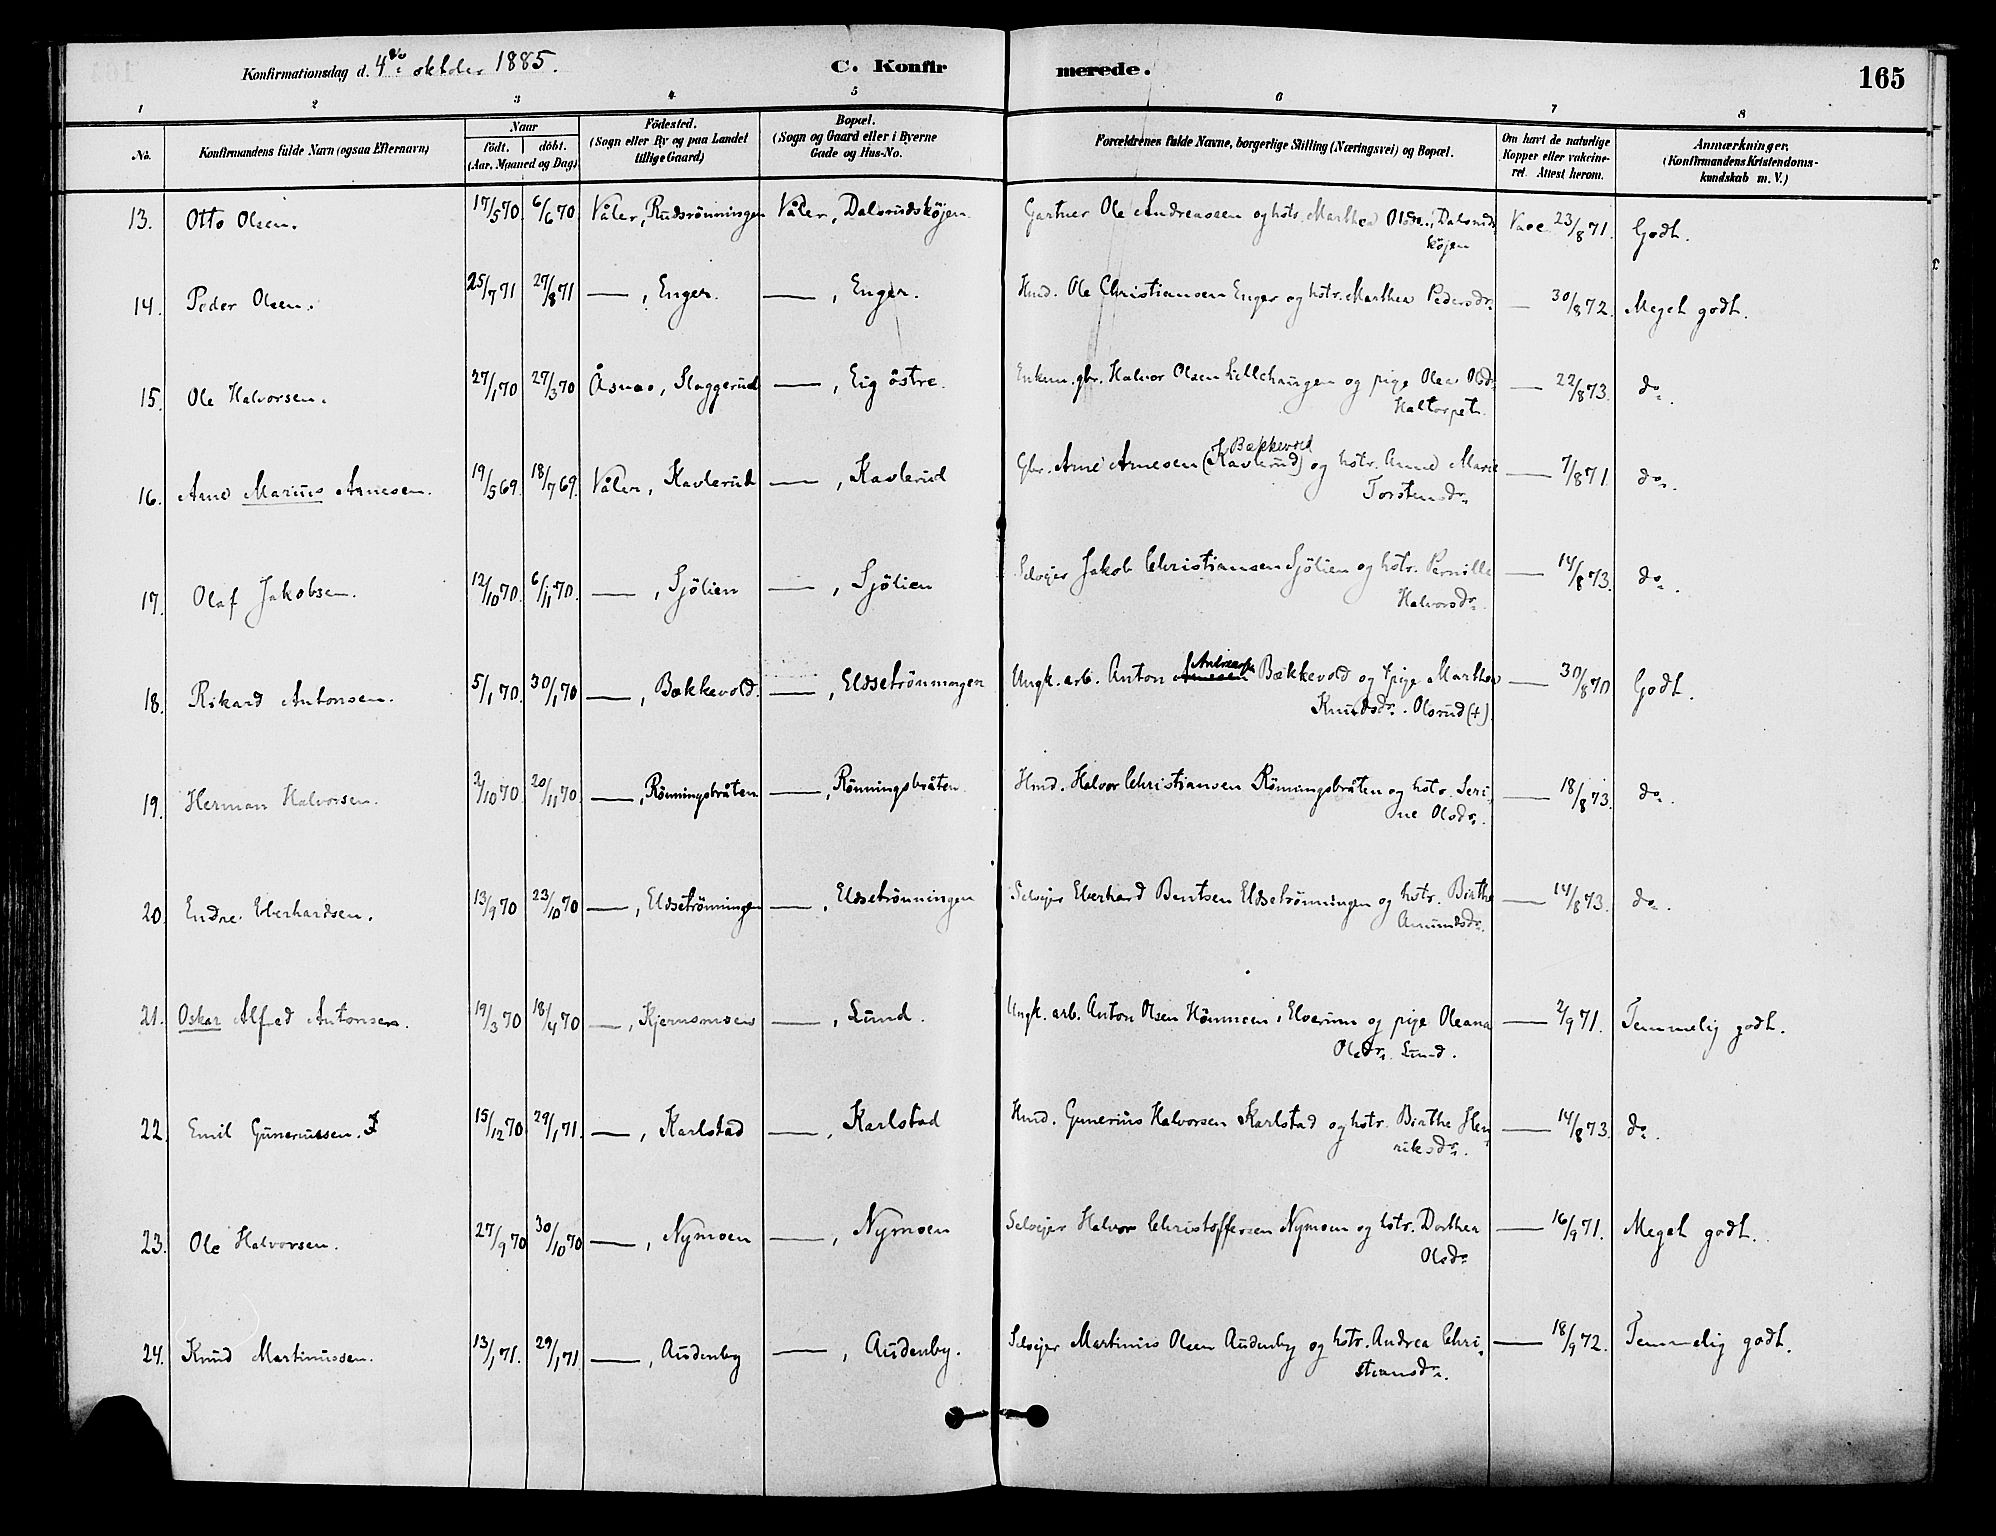 Konfirmationsdag d. 4de oktober 1885.
C. Konfirmerede.
165
1 2 3 4 5 6 7 8
No. Konfirmandens fulde Navn (ogsaa Efternavn) Naar født. døbt. (Aar, Maaned og Dag) Fødested. (Sogn eller By og paa Landet tillige Gaard) Bopæl. (Sogn og Gaard eller i Byerne Gade og Hus-No. Forældrenes fulde Navne, borgerlige Stilling (Næringsvei) og Bopæl. Om havt de naturlige Kopper eller vakcineret. Attest herom. Anmærkninger. (Konfirmandens Kristendomskundskab m. V.)
13. Otto Olsen. 17/5 70. 6/6 70 Våler, Rudsrönningen Våler, Dalsrudskøjen. Gartner Ole Andreassen og hstr. Marthea Olsdr., Dalsruds
køjen Vacc. 23/8 71. Godt.
14. Peder Olsen. 25/7 71 27/8 71 — , Enger. — , Enger. Hmd. Ole Christiansen Enger og hstr. Marthea Pedersdr. — 30/8 72. Meget godt.
15. Ole Halvorsen. 27/1 70 27/3 70 Åsnæs, Slaggerud — , Eig östre. Enkem. gbr. Halvor Olsen Lillehaugen og pige Olea Olsdr.
Haltorpet. — 22/8 73. do.
Bækkevold
16. Arne Marius Arnesen. 19/5 69. 18/7 69. Våler, Kavlerud — , Kavlerud Gbr. Arne Arnesen (Kavlerud) og hstr. Anne Marie
Torstensdr. — 7/8 71 do.
17. Olaf Jakobsen. 12/10 70. 6/11 70. — , Sjölien — , Sjölien Selvejer Jakob Christiansen Sjölien og hstr. Pernille
Halvorsdr. — 14/8 73. do.
18. Rikard Antonsen. 5/1 70. 30/1 70 — , Bækkevold. — , Eldsetrönningen Ungk. arb. Anton Bækkevold og pige Marthea
Knudsdr. Olsrud (+). — 30/8 70 Godt.
19. Herman Halvorsen. 2/10 70. 20/11 70. — , Rönningsbråten — , Rönningsbråten. Hmd. Halvor Christiansen Rönningsbråten og hstr. Seri-
ne Olsdr. — 18/8 73. do.
20. Endre Eberhardsen. 13/9 70 23/10 70 — , Eldsetrönningen — , Eldsetrönningen Selvejer Eberhard Berntsen Eldsetrönningen og hstr. Birthe
Amundsdr. — 14/8 73. do.
21. Oskar Alfred Antonsen. 19/3 70 18/4 70 — , Kjernsmoen — , Lund. Ungk. arb. Anton Olsen i Elverum og pige Oleana
Olsdr. Lund. — 2/9 71. Temmelig godt.
22. Emil Gunerussen. 15/12 70. 29/1 71. — , Karlstad — , Karlstad Hmd. Gunerius Halvorsen Karlstad og hstr. Birthe Hen-
riksdr. — 14/8 73. do.
23. Ole Halvorsen. 27/9 70 30/10 70 — , Nymoen — , Nymoen Selvejer Halvor Christoffersen Nymoen og hstr. Dorthea
Olsdr. — 16/9 71. Meget godt.
24. Knud Martinussen. 13/1 71. 29/1 71. — , Audenby — , Audenby. Selvejer Martinus Olsen Audenby og hstr. Andrea Chri-
stiansdr. — 18/9 72. Temmelig godt.